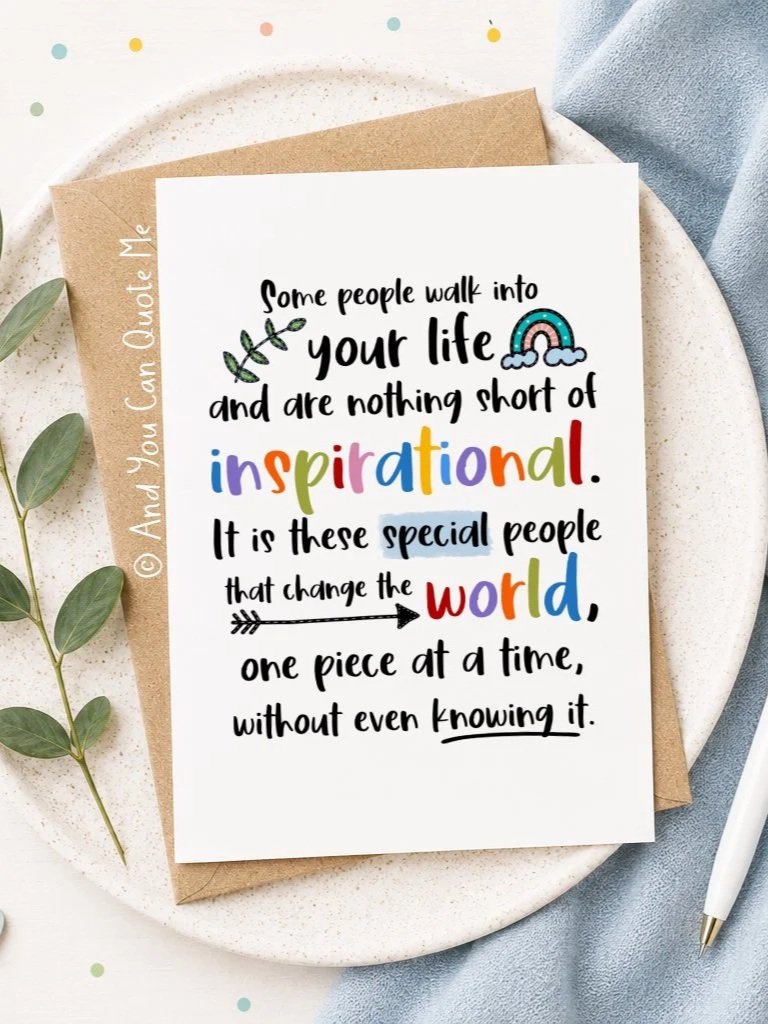 Some people walk into
your life
and are nothing short of
inspirational.
It is these special people
that change the
world,
one piece at a time,
without even knowing it.
© And You Can Quote Me